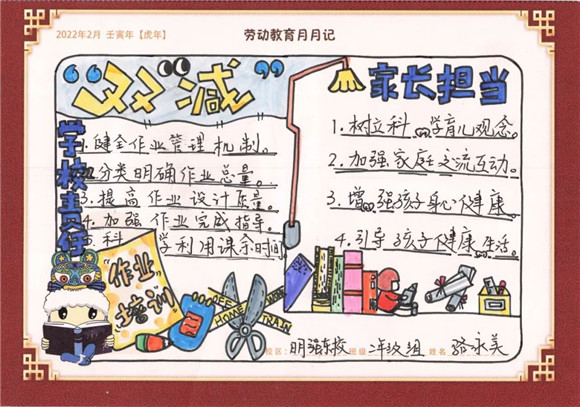 2022年2月 壬寅年【虎年】
劳动教育月月记
“双减”
家长担当
学校责任
1.健全作业管理机制。
2.分类明确作业总量。
3.提高作业设计质量。
4.加强作业完成指导。
5.科学利用课余时间
1.树立科学育儿观念。
2.加强家庭交流互动。
3.增强孩子身心健康
4.引导孩子健康生活。
“作业”
培训
OFF
HOMEWORK
TRAIN
校区：明强东校 班级 二年级组 姓名：骆永美